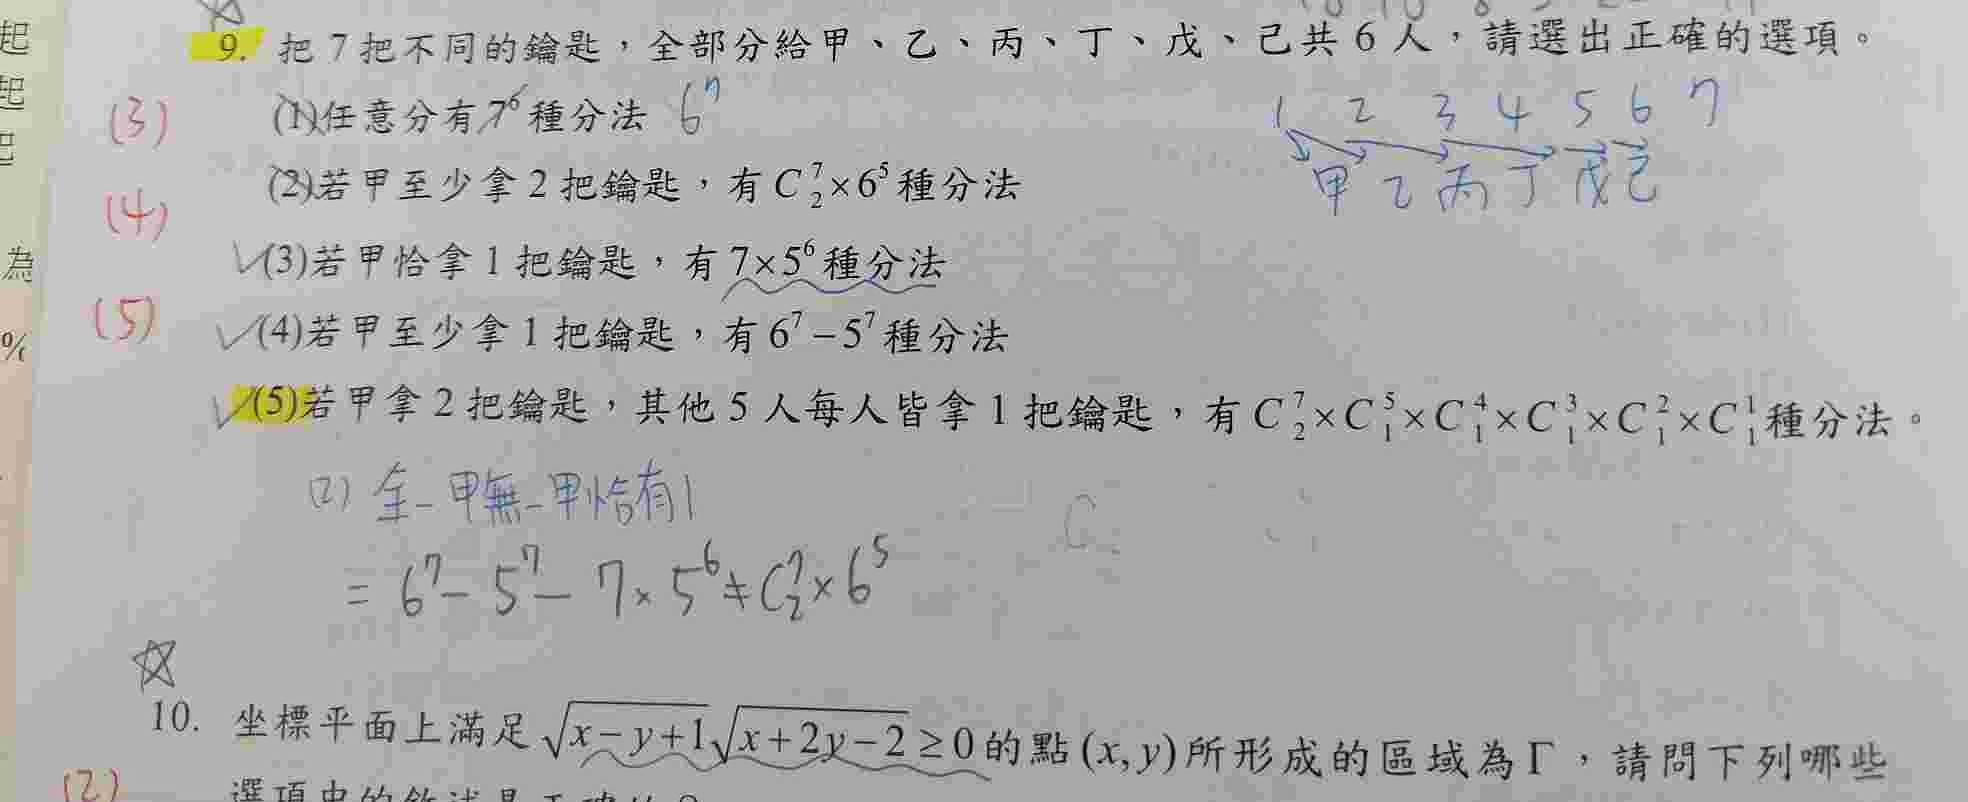 起
起
巳
為
%
9. 把 7 把不同的鑰匙,全部分給甲、乙、丙、丁、戊、己共 6 人,請選出正確的選項。
(3) (1)任意分有 7⁶ 種分法 6⁷
1 2 3 4 5 6 7
甲 乙 丙 丁 戊 己
(4) (2)若甲至少拿 2 把鑰匙,有 C⁷₂×6⁵ 種分法
✓(3)若甲恰拿 1 把鑰匙,有 7×5⁶ 種分法
(5) ✓(4)若甲至少拿 1 把鑰匙,有 6⁷−5⁷ 種分法
✓(5)若甲拿 2 把鑰匙,其他 5 人每人皆拿 1 把鑰匙,有 C⁷₂×C⁵₁×C⁴₁×C³₁×C²₁×C¹₁ 種分法。
(2) 全-甲無-甲恰有1
= 6⁷ − 5⁷ − 7×5⁶ ≠ C⁷₂×6⁵
10. 坐標平面上滿足 √(x−y+1)√(x+2y−2) ≥ 0 的點 (x, y) 所形成的區域為 Γ,請問下列哪些
(2)